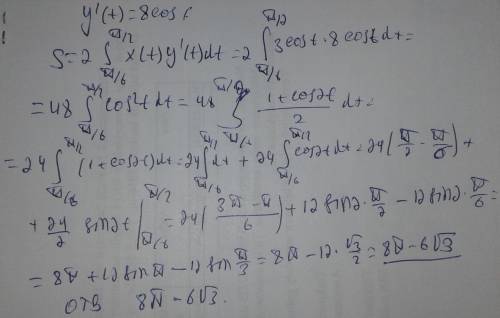 y'(t)=8cost
S=2∫_{π/6}^{π/2} x(t)y'(t)dt=2∫_{π/6}^{π/2} 3cost·8costdt=
=48∫_{π/6}^{π/2} cos²t dt=48∫_{π/6}^{π/2} (1+cos2t)/2 dt=
=24∫_{π/6}^{π/2} (1+cos2t)dt=24∫_{π/6}^{π/2} dt+24∫_{π/6}^{π/2} cos2t dt=24(π/2-π/6)+
+24/2 sin2t|_{π/6}^{π/2}=24((3π-π)/6)+12sin2·π/2-12sin2·π/6=
=8π+12sinπ-12sinπ/3=8π-12·√3/2=8π-6√3
ОТВ 8π-6√3.